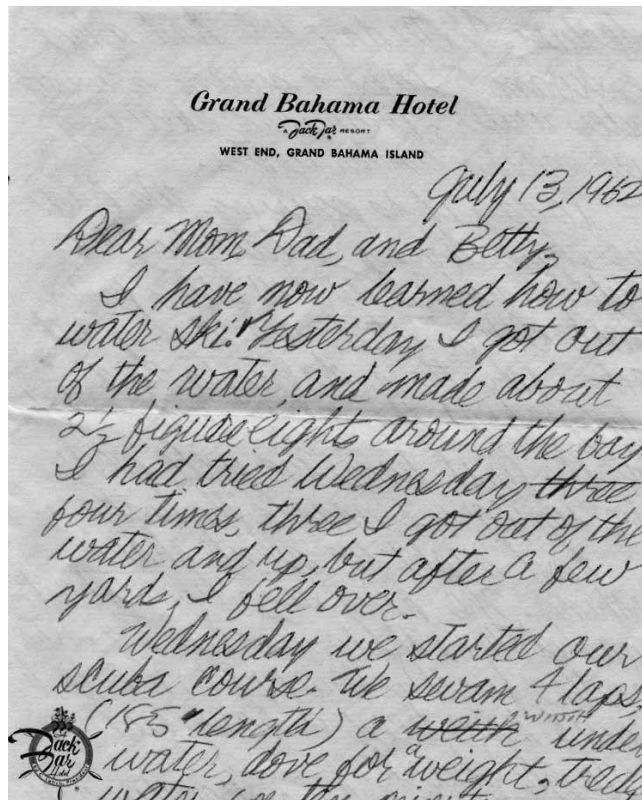 Grand Bahama Hotel
A Jack Tar RESORT
WEST END, GRAND BAHAMA ISLAND
July 13, 1962
Dear Mom, Dad, and Betty,
I have now learned how to
water ski! Yesterday I got out
of the water, and made about
2½ figure eights around the bay
I had tried Wednesday three
four times, three I got out of the
water and up, but after a few
yards, I fell over.
Wednesday we started our
scuba course. We swam 4 laps
(185" length) a width under
water, dove for "weight, tread
Jack
Tar
Hotel